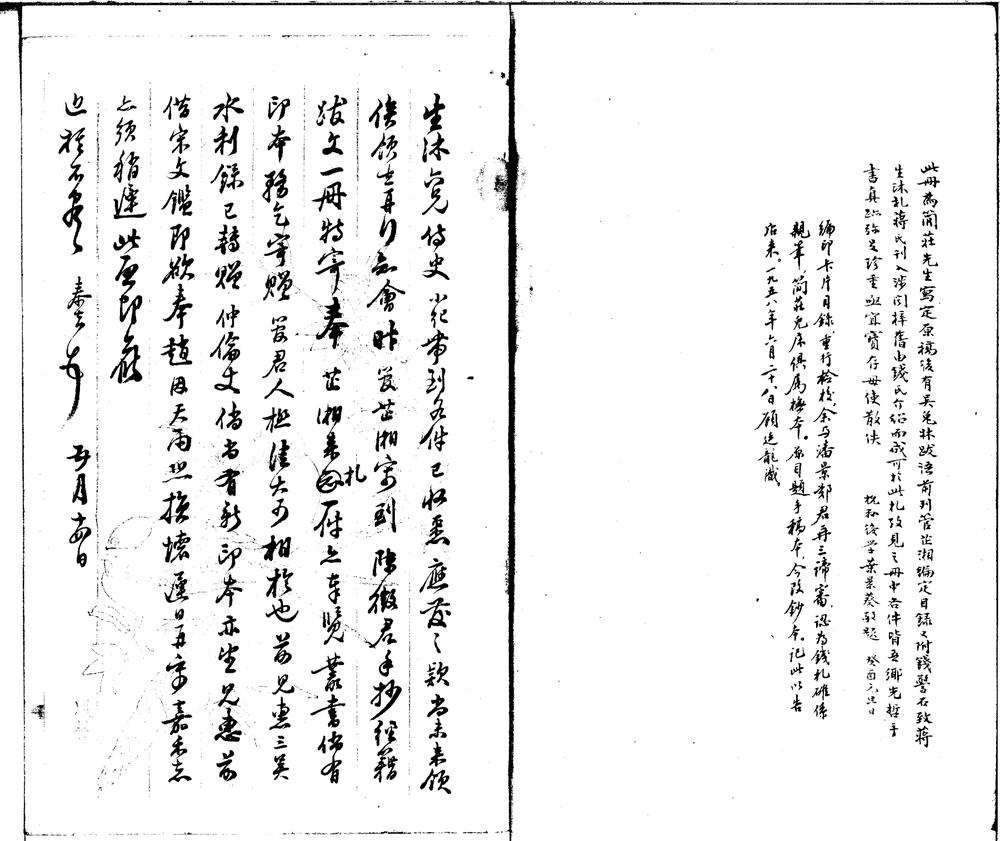 此冊為簡莊先生寫定原稿後有吳兔牀跋語前列管芷湘編定目錄又附錢警石致蔣
生沐札蔣氏刊入涉聞梓舊由錢氏介紹而成可於此札攷見之冊中各件皆吾鄉先哲手
書真跡弥足珍重亟宜寶存毋使散佚 杭郡後學葉景葵敬題 癸酉元旦日
編印卡片目錄重行檢校余与潘景鄭君再三諦審認為錢札確係
親筆簡莊兔床俱屬摹本。原目題手稿本、今改鈔本。記此以告
後来。一九五八年六月二十八日顧廷龍識。
生沐六兄侍史 小价帶到各件已收悉應發之款尚未来領
俟領出再行知會昨管芷湘寄到陳徵君手抄經籍
跋文一冊特寄奉芷湘来札一件亦奉覽叢書倘有
印本務乞寄贈管君人極佳大可相於也前兄惠三吳
水利錄已轉贈仲倫丈倘尚有新印本亦望兄惠前
借宋文鑑即欲奉趙因天雨恐損壞遲日再寄嘉禾志
亦須稍遲此函即蔽
近祺不盡 泰吉 頓首 五月十四日